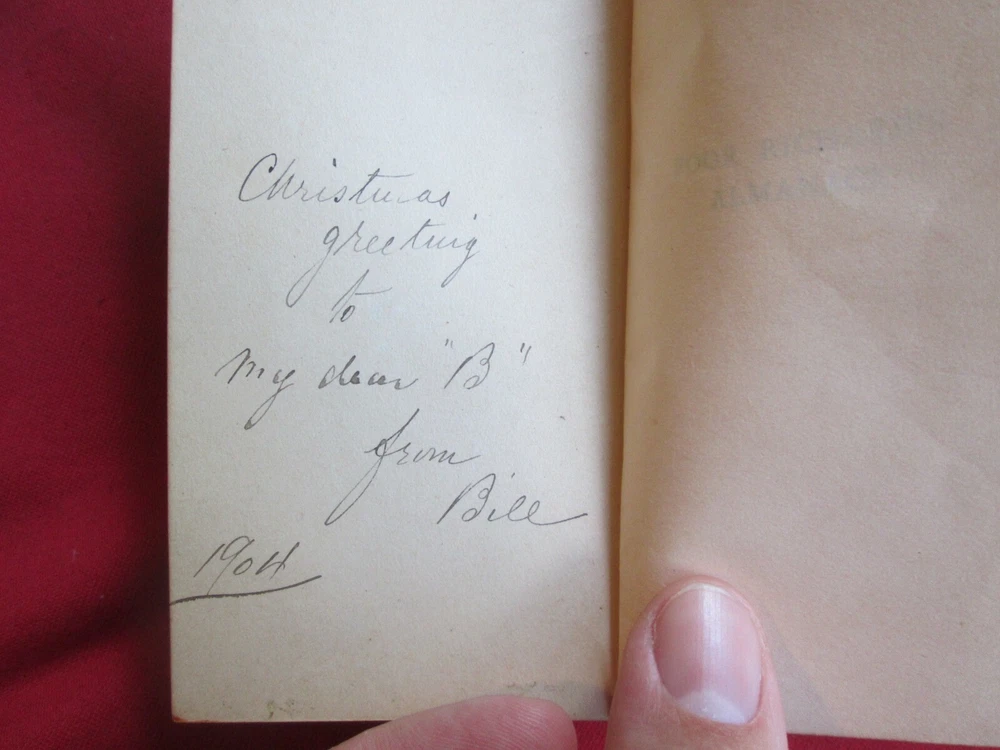 Christmas
greeting
to
My dear "B"
from
Bill
1904